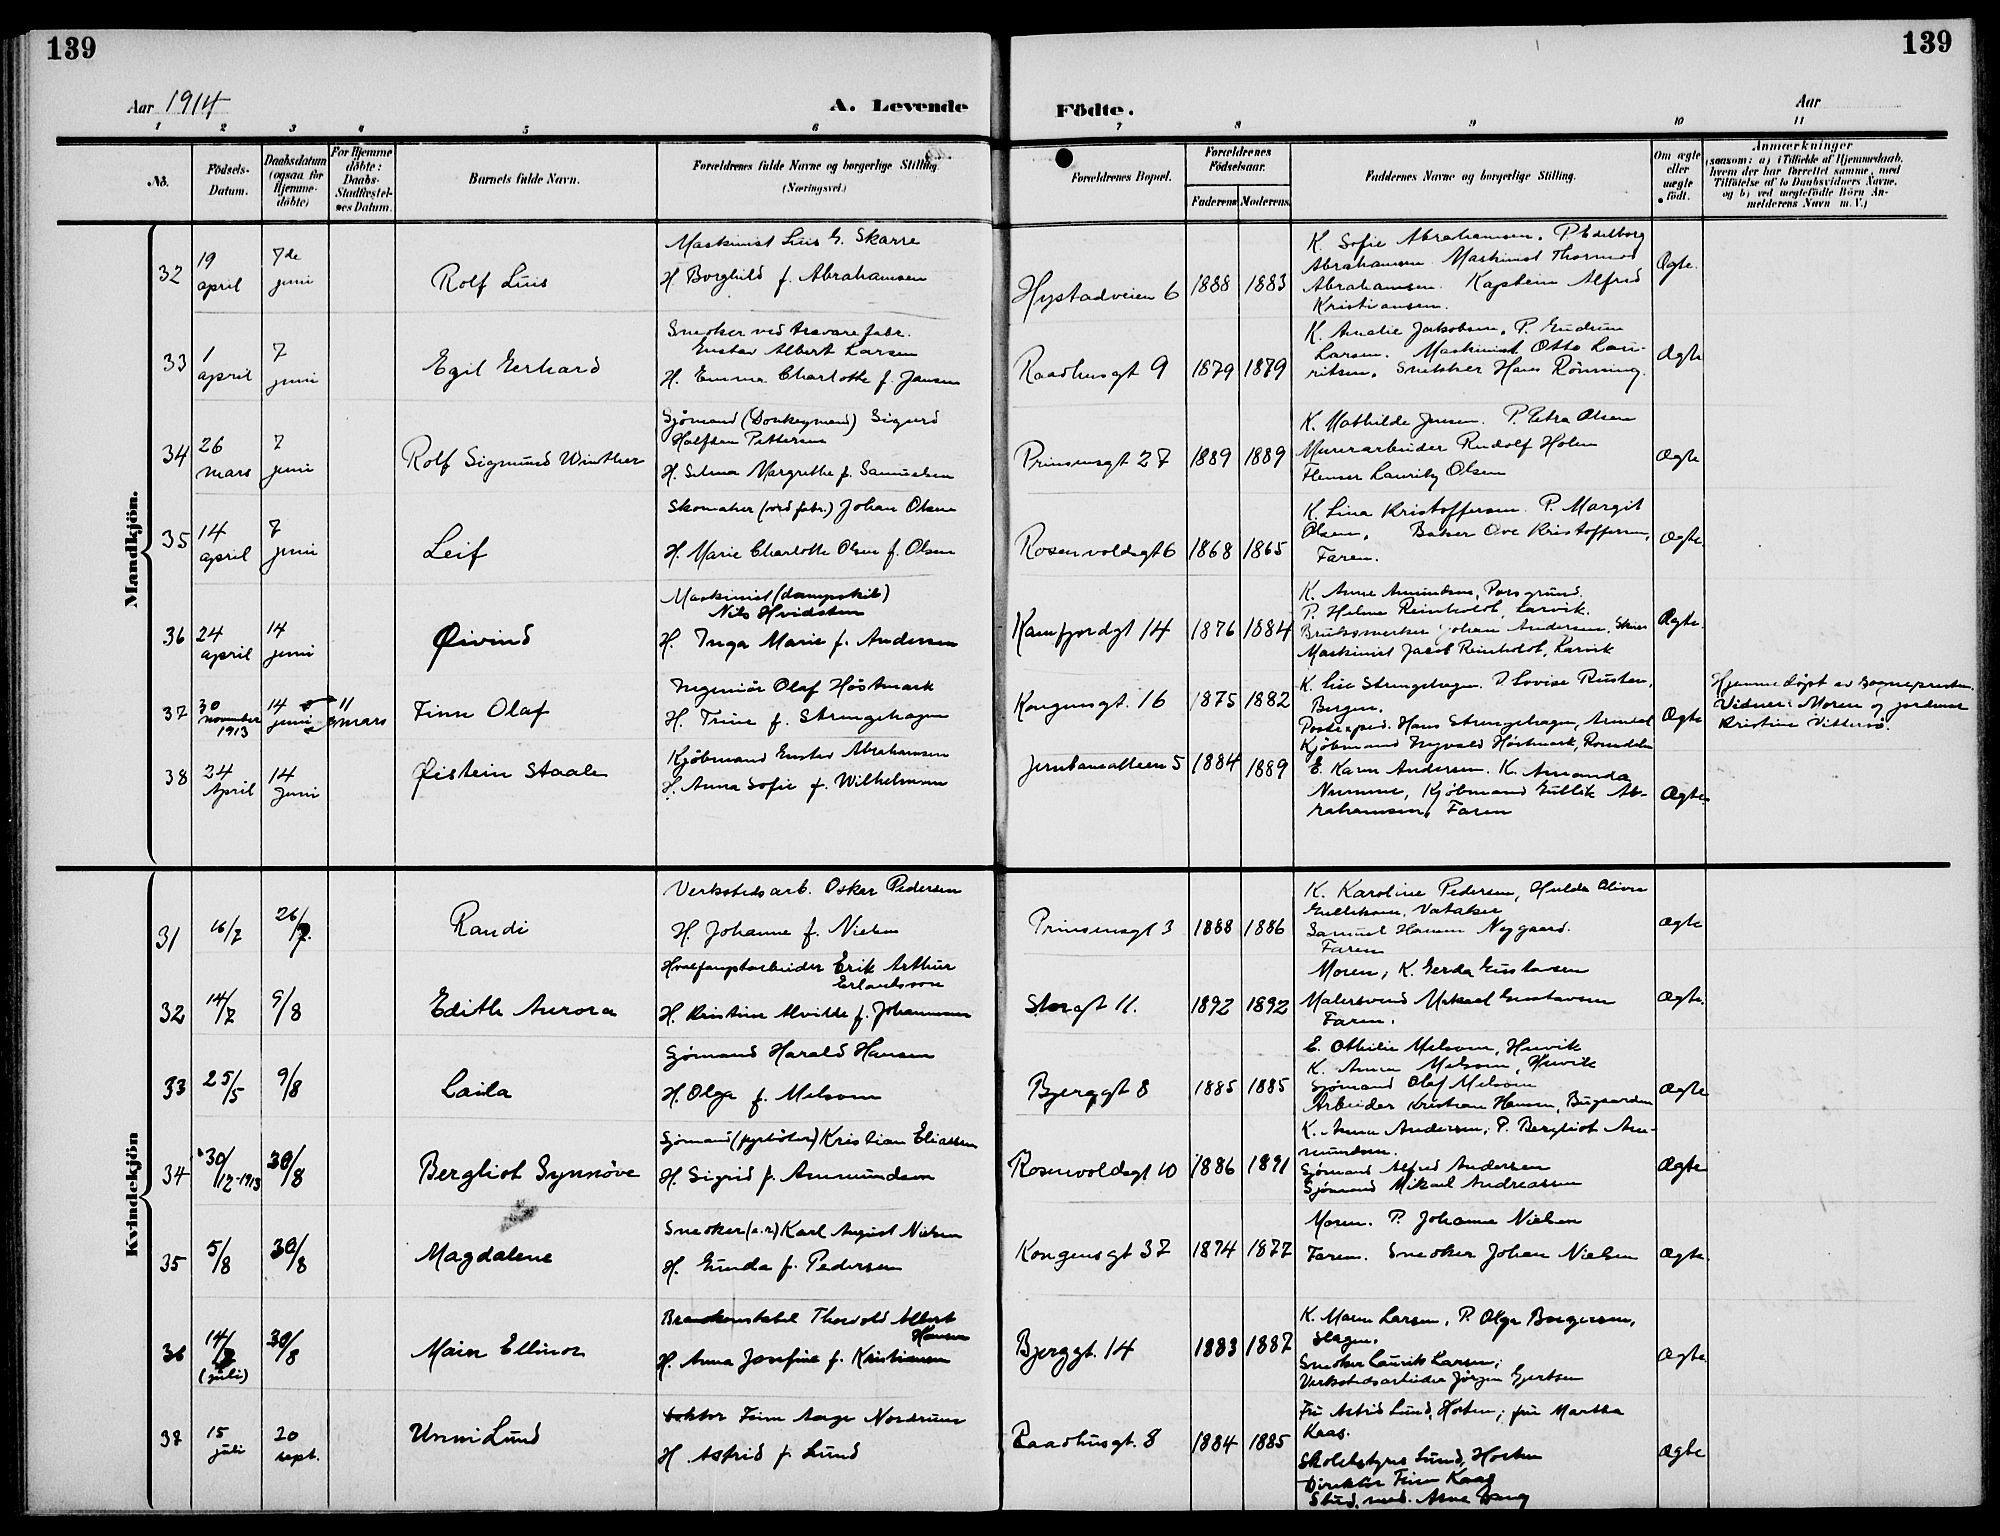 139
139
Aar 1914
A. Levende
Födte.
Aar
1 2 3 4 5 6 7 8 9 10 11
No.
Födsels-
Datum.
Daabsdatum
(ogsaa for
Hjemme-
döbte)
For Hjemme
döbte:
Daabs-
Stadfæstel-
ses Datum.
Barnets fulde Navn.
Forældrenes fulde Navne og borgerlige Stilling.
(Næringsvei.)
Forældrenes Bopæl.
Forældrenes
Födselsaar.
Faderens
Moderens.
Faddernes Navne og borgerlige Stilling.
Om ægte
eller
uægte
födt.
Anmærkninger
(saasom: a) i Tilfælde af Hjemmedaab,
hvem der har forrettet samme, med
Tilföielse af to Daabsvidners Navne,
og b) ved uægtefödte Börn An-
melderens Navn m. V.)
Mandkjön.
32
19
april
7de
juni
Rolf Luis
Maskinist Luis G. Skarre
H. Borghild f. Abrahamsen
Hystadveien 6
1888
1883
K. Sofie Abrahamsen, P. Edelborg
Abrahamsen Maskinist Thormod
Abrahamsen. Kaptein Alfred
Kristiansen.
Ægte.
33
1
april
7
juni
Egil Gerhard
Snedker ved trævarefabr.
Gustav Albert Larsen
H. Emma Charlotte f. Jansen
Raadhusgt 9
1879
1879
K. Amalie Jakobsen, P. Gudrun
Larsen. Maskinist Otto Lau-
ritsen, Snekker Hans Rönning.
Ægte
34
26
mars
7
juni
Rolf Sigmund Winther
Sjømand (Donkeymand) Sigurd
Halfdan Pettersen
H. Selma Margrethe f. Samuelsen
Prinsensgt 27
1889
1889
K. Mathilde Jensen. P. Petra Olsen
Murerarbeider Rudolf Holm
Flenser Lauritz Olsen
Ægte
35
14
april
7
juni
Leif
Skomaker (ved fabr.) Johan Olsen
H. Marie Charlotte Olsen f. Olsen
Rosenvoldsgt 6
1868
1865
K. Lina Kristoffersen. P. Margit
Olsen, Baker Ove Kristoffersen,
Faren.
Ægte.
36
24
april
14
juni
Øivind
Maskinist (dampskib)
Nils Hvidsten
H. Inga Marie f. Andersen
Kamfjordgt 14
1876
1884
K. Anne Amundsen, Porsgrund.
P. Helene Reinholdt, Larvik.
Bruksmerker Johan Andersen, Skien
Maskinist Jacob Reinholdt, Larvik
Ægte.
37
30
november
1913
14
juni
11
mars
Finn Olaf
Ingeniör Olaf Höstmark
H. Trine f. Strengehagen
Kongensgt. 16
1875
1882
K. Lise Strengehagen. P. Lovise Rusten,
Bergen.
Postexped. Hans Strengehagen, Arendal
Kjöbmand Ingvald Höstmark, Romsdalen
Ægte
Hjemmedøpt av sogneprestn.
Vidner: Moren og jordmor
Kristine Vittersö.
38
24
April
14
Juni
Øistein Staale
Kjöbmand Gustav Abrahamsen
H. Anna Sofie f. Wilhelmsen
Jernbanealleen 5
1884
1889
E. Karen Andersen. K. Amanda
Numme, Kjöbmand Gullik Ab-
rahamsen, Faren
Ægte
Kvindekjön
31
16/7
26/7.
Randi
Verkstedsarb. Oskar Pedersen
H. Johanne f. Nielsen
Prinsensgt 3
1888
1886
K. Karoline Pedersen, Hulda Olivia
Gulliksen,
Samuel Hansen Nygaard.
Faren
Ægte
32
14/7
9/8
Edith Aurora
Hvalfangstarbeider Erik Arthur
Erlandsson
H. Kristine Alvilde f. Johannessen
Storgt 11.
1892
1892
Moren, K. Gerda Gustavsen
Malersvend Mikael Gustavsen
Faren.
Ægte.
33
25/5
9/8
Laila
Sjömand Harald Hansen
H. Olga f. Melsom
Bjerggt 8
1885
1885
E. Othilie Melsom, Husvik
K. Anna Melsom, Husvik
Sjömand Olaf Melsom
Arbeider Kristian Hansen, Bugaarden
Ægte
34
30/12-1913
30/8
Bergliot Synnöve
Sjømand (fyrböter) Kristian Eliassen
H. Sigrid f. Ammundsen
Rosenvoldsgt 10
1886
1891
K. Anna Andersen, P. Bergliot Am-
mundsen.
Sjömand Alfred Andersen
Sjömand Mikael Andreassen
Ægte
35
5/8
30/8
Magdalene
Snedker (a.r) Karl August Nielsen
H. Gunda f. Pedersen
Kongensgt 37
1874
1877
Moren. P. Johanne Nielsen
Faren. Snedker Johan Nielsen
Ægte.
36
14/7
(juli)
30/8
Mair Ellinor
Brandkonstabel Thorvald Albert
Hansen
H. Anna Josefine f. Kristiansen
Bjerggt. 14
1883
1887
K. Maren Larsen, P. Olga Borgersen,
Slagen.
Snedker Laurits Larsen;
Verkstedsarbeider Jörgen Gjertsen
Ægte
37
15
juli
20
sept.
Unni Lund
Doktor Finn Aage Nordrum
H. Astrid f. Lund
Raadhusgt. 8
1884
1885
Fru Astrid Lund, Horten; fru Martha
Kaas.
Skolebestyrer Lund, Horten
Direktör Finn Kaas
Stud. med. Arne
Ægte